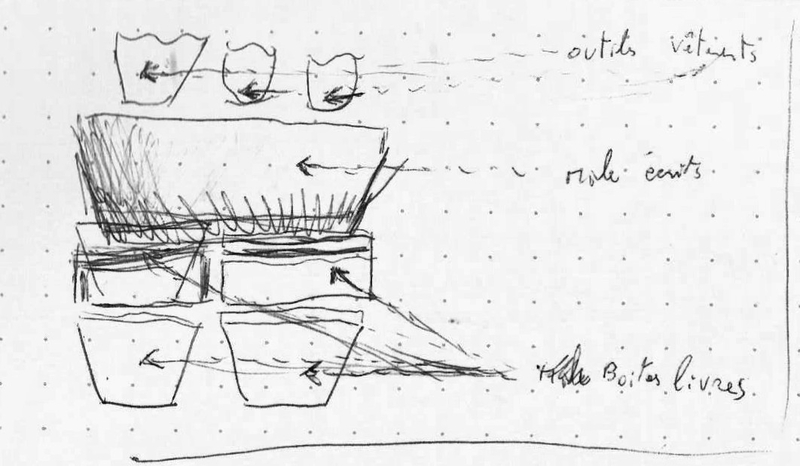 outils vêtements
écrits
Boites livres.